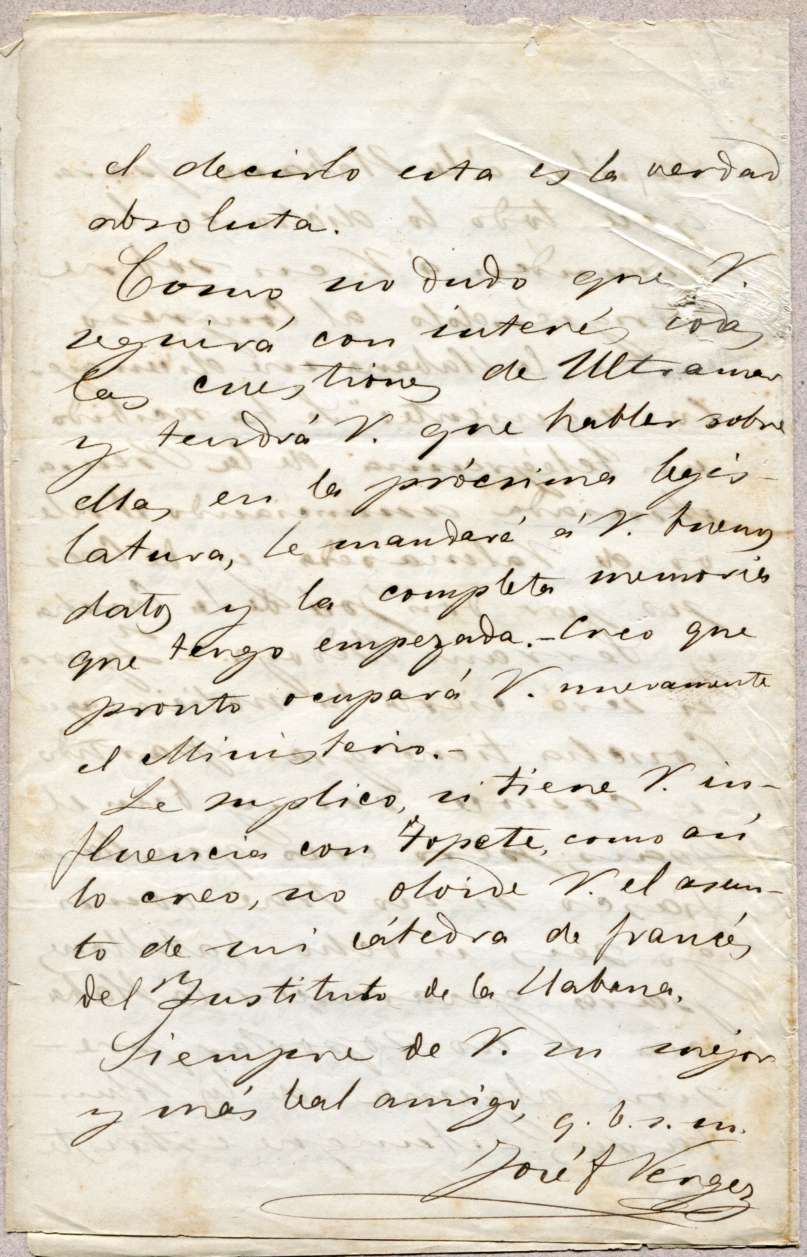 el decirlo esta es la verdad
absoluta.
Como no dudo que V.
seguirá con interés todas
las cuestiones de Ultramar
y tendrá V. que hablar sobre
ellas en la prócsima legis-
latura, le mandaré á V. buenos
datos y la completa memoria
que tengo empezada.- Creo que
pronto ocupará V. nuevamente
el Ministerio.-
Le suplico, si tiene V. in-
fluencia con Topete, como así
lo creo, no olvide V. el asun-
to de mi cátedra de francés
del Instituto de la Habana.
Siempre de V. su mejor
y más leal amigo, q. b. s. m.
José F Vergez